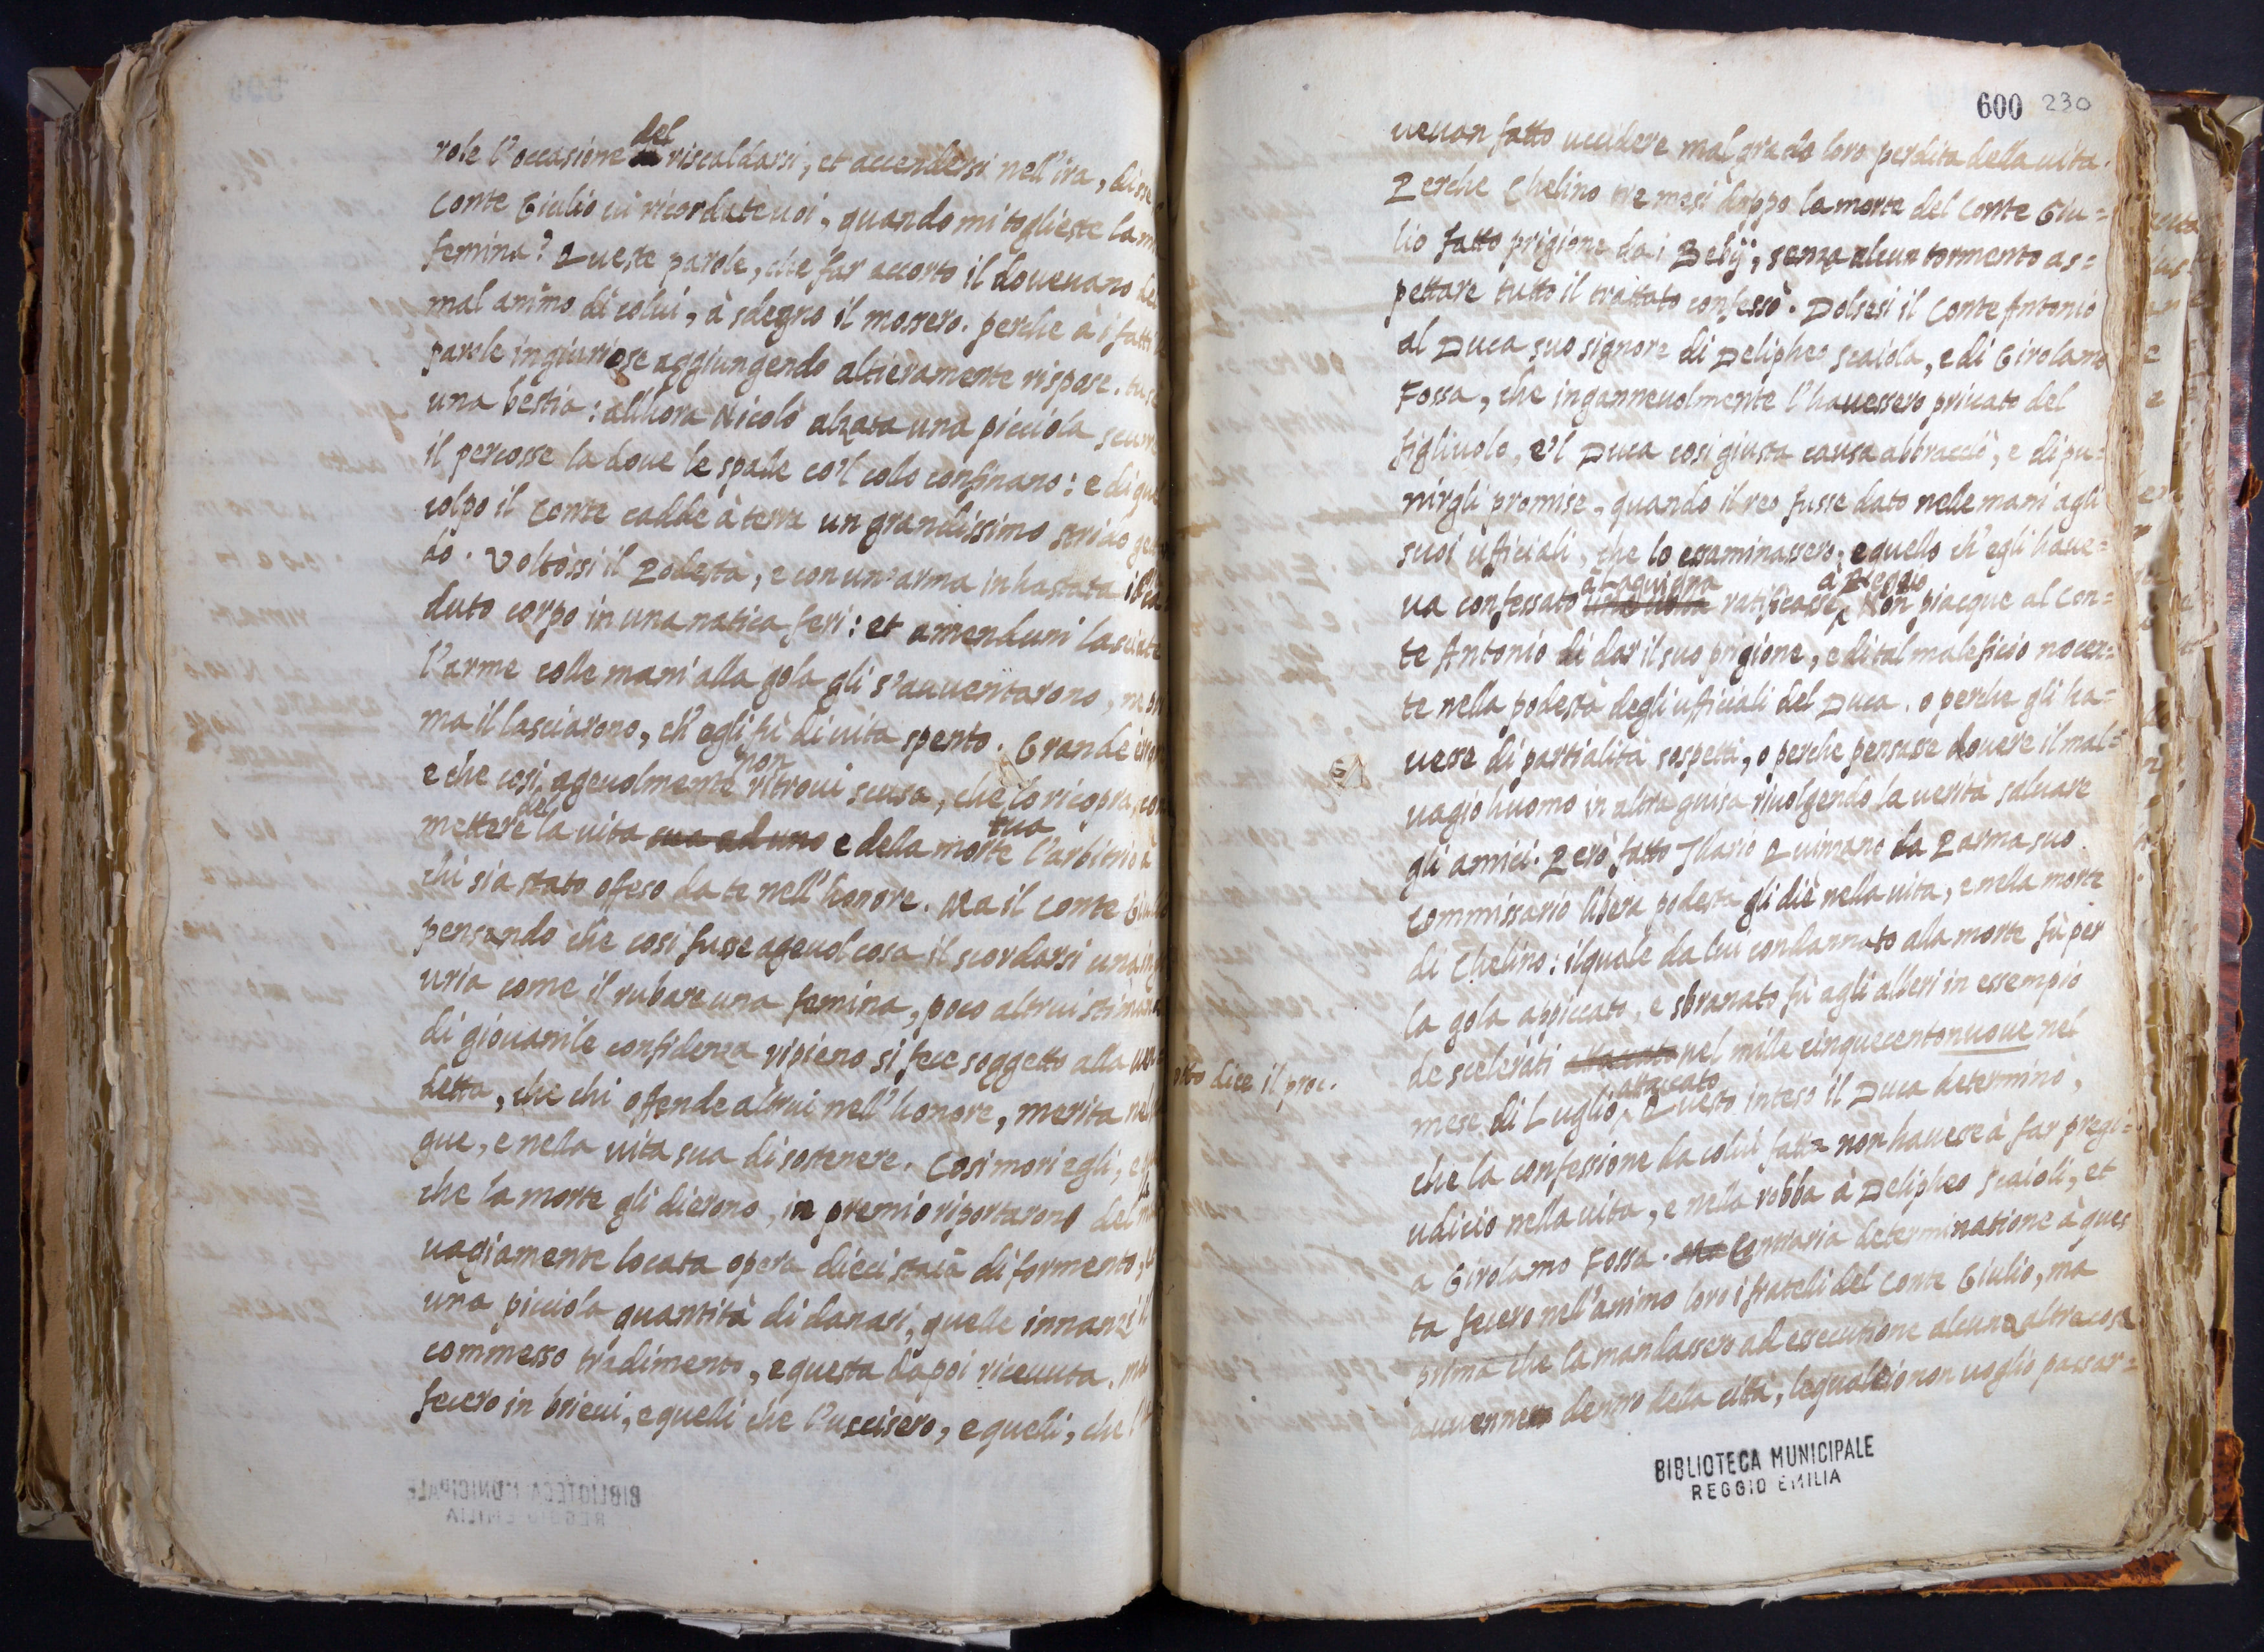 role l'occasione del riscaldarsi, et accendersi nell'ira, disse
Conte Giulio ui ricordate uoi, quando mi toglieste la mi
femina? Queste parole, che far accorto il doueuano del
mal animo di colui, à sdegno il mossero. perche à i fatti
parole ingiuriose aggiungendo altieramente rispose. tu se
una bestia: allhora Nicolò alzata una picciola scure
il percosse la doue le spalle co'l collo confinano: e di quel
colpo il Conte cadde à terra un grandissimo strido get
do. Voltossi il Podestà, e con un'arma in hastata il ca
duto corpo in una natica ferì: et amenduni lasciate
l'arme colle mani alla gola gli s'auuentarono, ne pri
ma il lasciarono, ch'egli fù di uita spento. Grande error
e che cosi ageuolmente non ritroui scusa, che lo ricopra, com
mettere del la uita sua ad uno e della morte tua l'arbitrio à
chi sia stato offeso da te nell'honore. Ma il Conte Giulio
pensando che cosi fusse ageuol cosa il scordarsi una ingi
uria come il rubare una femina, poco altrui stimando
di giouanile confidenza ripieno si fece soggetto alla uen=
detta, che chi offende altrui nell'honore, merita nel
gue, e nella uita sua di sostenere. Cosi morì egli, e
che la morte gli dierono, in premio riportarono della mal
uagiamente locata opera dieci staia di formento,
una picciola quantità di danari, quelle innanzi il
commesso tradimento, e questa dapoi riceuuta.
fecero in brieui, e quelli che l'uccisero, e quelli, che l'ha
600 230
ueuan fatto uccidere mal grado loro perdita della uita.
Perche Chelino tre mesi doppo la morte del Conte Giu=
lio fatto prigione da i Bebij, senza alcun tormento as=
pettare tutto il trattato confessò. Dolsesi il Conte Antonio
al Duca suo signore di Delipheo Scaiola, e di Girolamo
Fossa, che ingannevolmente l'hauessero priuato del
figliuolo, e'l Duca cosi giusta causa abbracciò, e di pu=
nirgli promise, quando il reo fusse dato nelle mani agli
suoi ufficiali, che lo essaminassero; e quello ch'egli haue=
ua confessato a Laquigna ratificasse à Reggio. Non piacque al Con=
te Antonio di dar il suo prigione, e di tal maleficio nocen=
te nella podestà degli ufficiali del Duca. o perche gli ha=
uesse di partialità sospetti, o perche pensasse douere il mal=
uagio huomo in altra guisa riuolgendo la uerità saluare
gli amici. Però fatto Ilario Quimano da Parma suo
Commissario libera podestà gli diè nella uita, e nella morte
di Chelino: ilquale da lui condannato alla morte fù per
la gola appiccato, e sbranato fù agli alberi in essempio
de scelerati attaccato nel mille cinquecento nuoue nel
otto dice il proc.
mese di Luglio, attaccato Questo inteso il Duca determinò,
che la confessione da colui fatta non hauesse à far pregi=
udicio nella uita, e nella robba à Delipheo Scaioli, et
a Girolamo Fossa. Ma Contraria determinatione à ques
ta fecero nell'animo loro i fratelli del Conte Giulio, ma
prima che la mandassero ad essecutione alcune altre cose
auuennero dentro della città, lequali io non uoglio passar=
BIBLIOTECA MUNICIPALE
REGGIO EMILIA